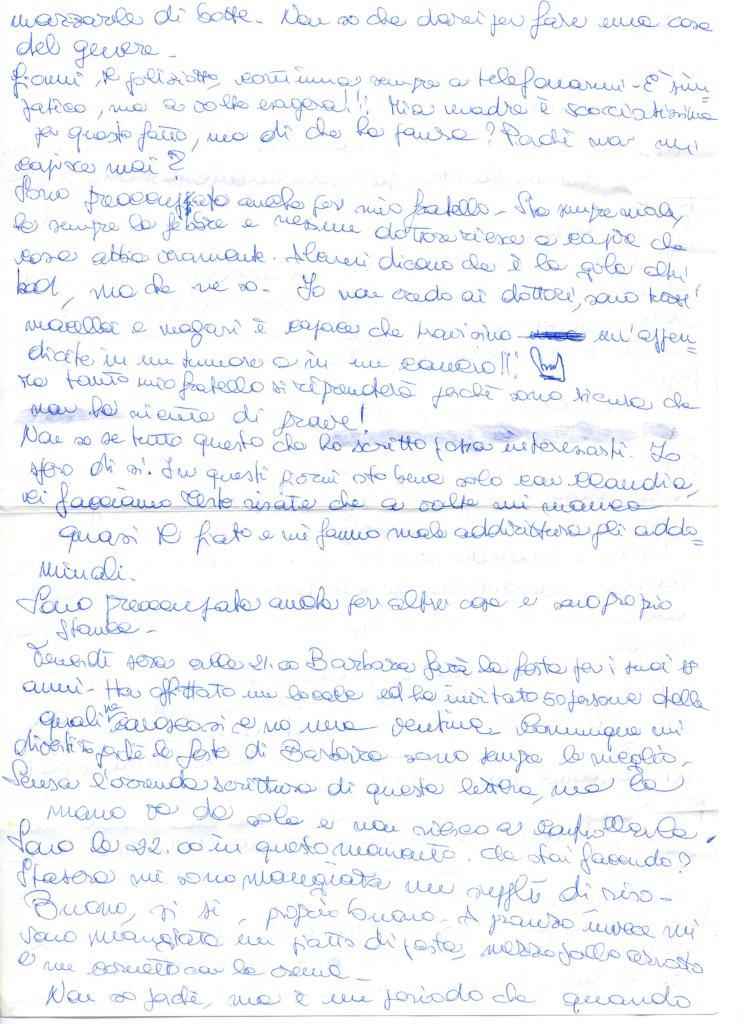 mazzarle di botte - Non so che darei per fare una cosa
del genere -
Gianni, il poliziotto, continua sempre a telefonarmi - È sim=
patico, ma a volte esagera!!! Mia madre è scocciatissima
per questo fatto, ma di che ha paura? Perchè non mi
capisce mai?
Sono preoccupata anche per mio fratello - Sta sempre male,
ha sempre la febbre e nessun dottore riesce a capire che
cosa abbia veramente. Alcuni dicono che è la gola altri
, ma che ne so - Io non credo ai dottori, sono tutti
macellai e magari è capace che travisino un'appen=
dicite in un tumore o in un cancro!!!
Ma tanto mio fratello si riprenderà perchè sono sicura che
non ha niente di grave!
Non so se tutto questo che ho scritto possa interessarti. Io
spero di sì. In questi giorni sto bene solo con Claudia,
ci facciamo certe risate che a volte mi manca
quasi il fiato e mi fanno male addirittura gli addo=
minali.
Sono preoccupata anche per altre cose e sono proprio
stanca -
Venerdì sera alle 21.00 Barbara farà la festa per i suoi 18
anni - Ha affittato un locale ed ha invitato 50 persone delle
quali ne conoscerò e no una ventina. Comunque mi
divertirò perchè le feste di Barbara sono sempre le meglio -
Scusa l'orrenda scrittura di questa lettera, ma la
mano va da sola e non riesco a controllarla
Sono le 22.00 in questo momento. Che stai facendo?
Stasera mi sono mangiata un supplì di riso -
Buono, sì sì, proprio buono - A pranzo invece mi
sono mangiata un piatto di pasta, mezzo pollo arrosto
e un cornetto con la crema -
Non so perchè, ma è un periodo che quando